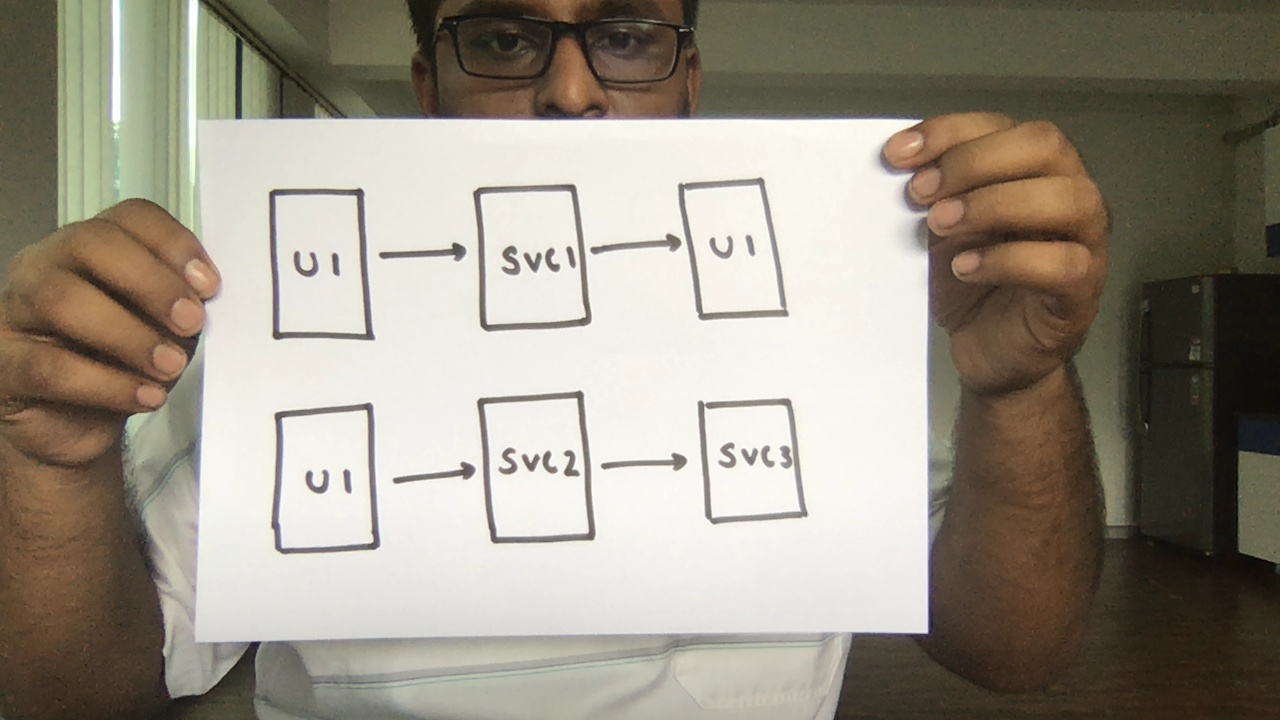 UI SVC1 UI
UI SVC2 SVC3